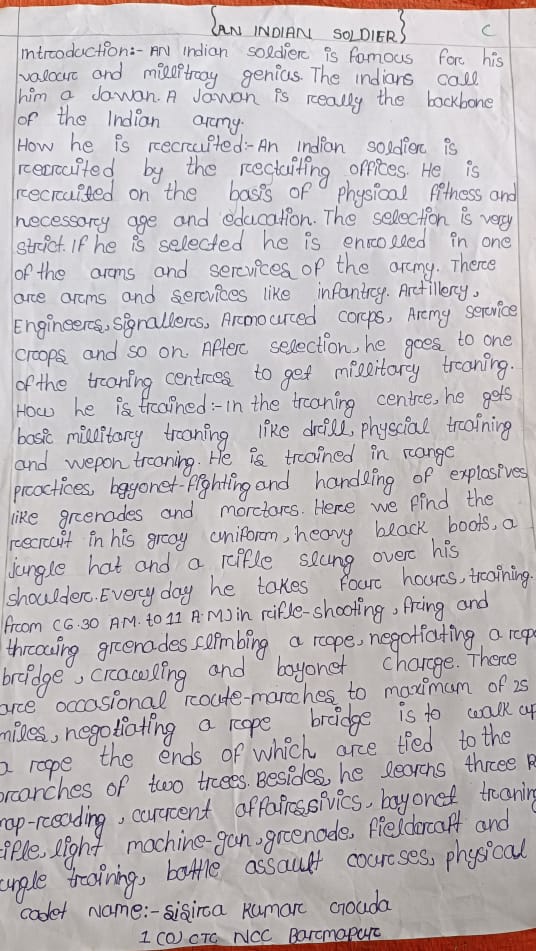 {AN INDIAN SOLDIER}
C
Introduction:- AN Indian soldier is famous for his
valour and millitray genius. The indians call
him a Jawan. A Jawan is really the backbone
of the Indian army.
How he is recruited:- An Indian soldier is
recruited by the rectuiting offices. He is
recruited on the basis of physical fitness and
necessary age and education. The selection is very
strict. If he is selected he is enrolled in one
of the arms and services of the army. There
are arms and services like infantry. Artillery,
Engineers, signallers, Armoured corps, Army service
croops and so on. After selection, he goes to one
of the traning centres to get millitary traning.
How he is trained:- in the traning centre, he gets
basic millitary traning like drill, physcial training
and wepon traning. He is trained in range
practices, bayonet-fighting and handling of explosives
like grenades and mortars. Here we find the
recruit in his gray uniform, heavy black boots, a
jungle hat and a rifle slung over his
shoulder. Every day he takes four hours, training.
from (6.30 AM. to 11 A.M) in rifle-shooting, firing and
throwing grenades climbing a rope, negotiating a rope
breidge, crawling and bayonet charge. There
are occasional route-marches to maximum of 25
miles, negotiating a rope breidge is to walk up
a rope the ends of which are tied to the
branches of two trees. Besides, he learns three R
map-reading, current affairs, sivics, bayonet traning
rifle, light machine-gun, grenade, fieldcraft and
jungle training, battle assault courses, physical
cadet Name:- Sisira Kumar Gouda
1 (O) CTC NCC Barmapur